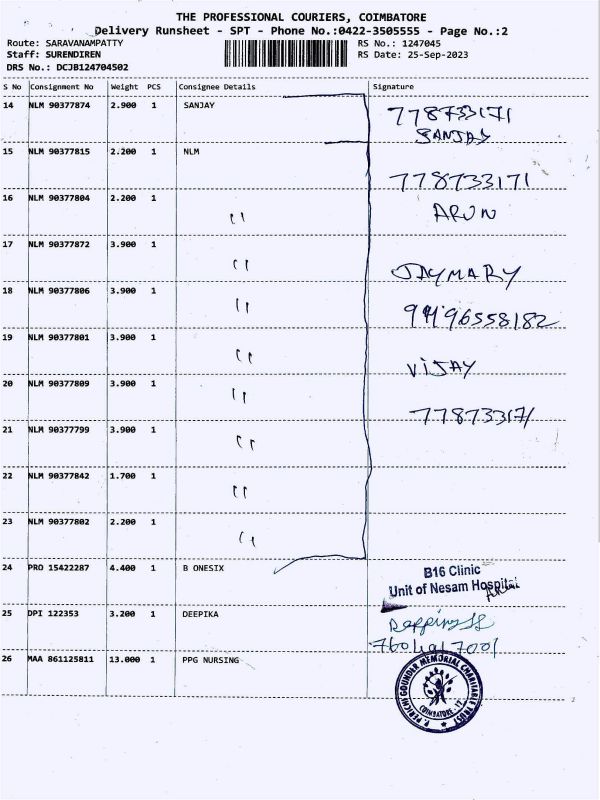 THE PROFESSIONAL COURIERS, COIMBATORE
Delivery Runsheet - SPT - Phone No.:0422-3505555 - Page No.:2
Route: SARAVANAMPATTY
RS No.: 1247045
Staff: SURENDIREN
RS Date: 25-Sep-2023
DRS No.: DCJB124704502
S No Consignment No Weight PCS Consignee Details Signature
14 NLM 90377874 2.900 1 SANJAY 778733171
SANJAY
15 NLM 90377815 2.200 1 NLM 778733171
16 NLM 90377804 2.200 1 " ARUN
17 NLM 90377872 3.900 1 " JAYMARY
18 NLM 90377806 3.900 1 "
19 NLM 90377801 3.900 1 " VIJAY
20 NLM 90377809 3.900 1 " 778733171
21 NLM 90377799 3.900 1 "
22 NLM 90377842 1.700 1 "
23 NLM 90377802 2.200 1 "
24 PRO 15422287 4.400 1 B ONESIX B16 Clinic
Unit of Nesam Hospital
25 DPI 122353 3.200 1 DEEPIKA
26 MAA 861125811 13.000 1 PPG NURSING
P. PERICHI GOUNDER MEMORIAL CHARITABLE TRUST
COIMBATORE